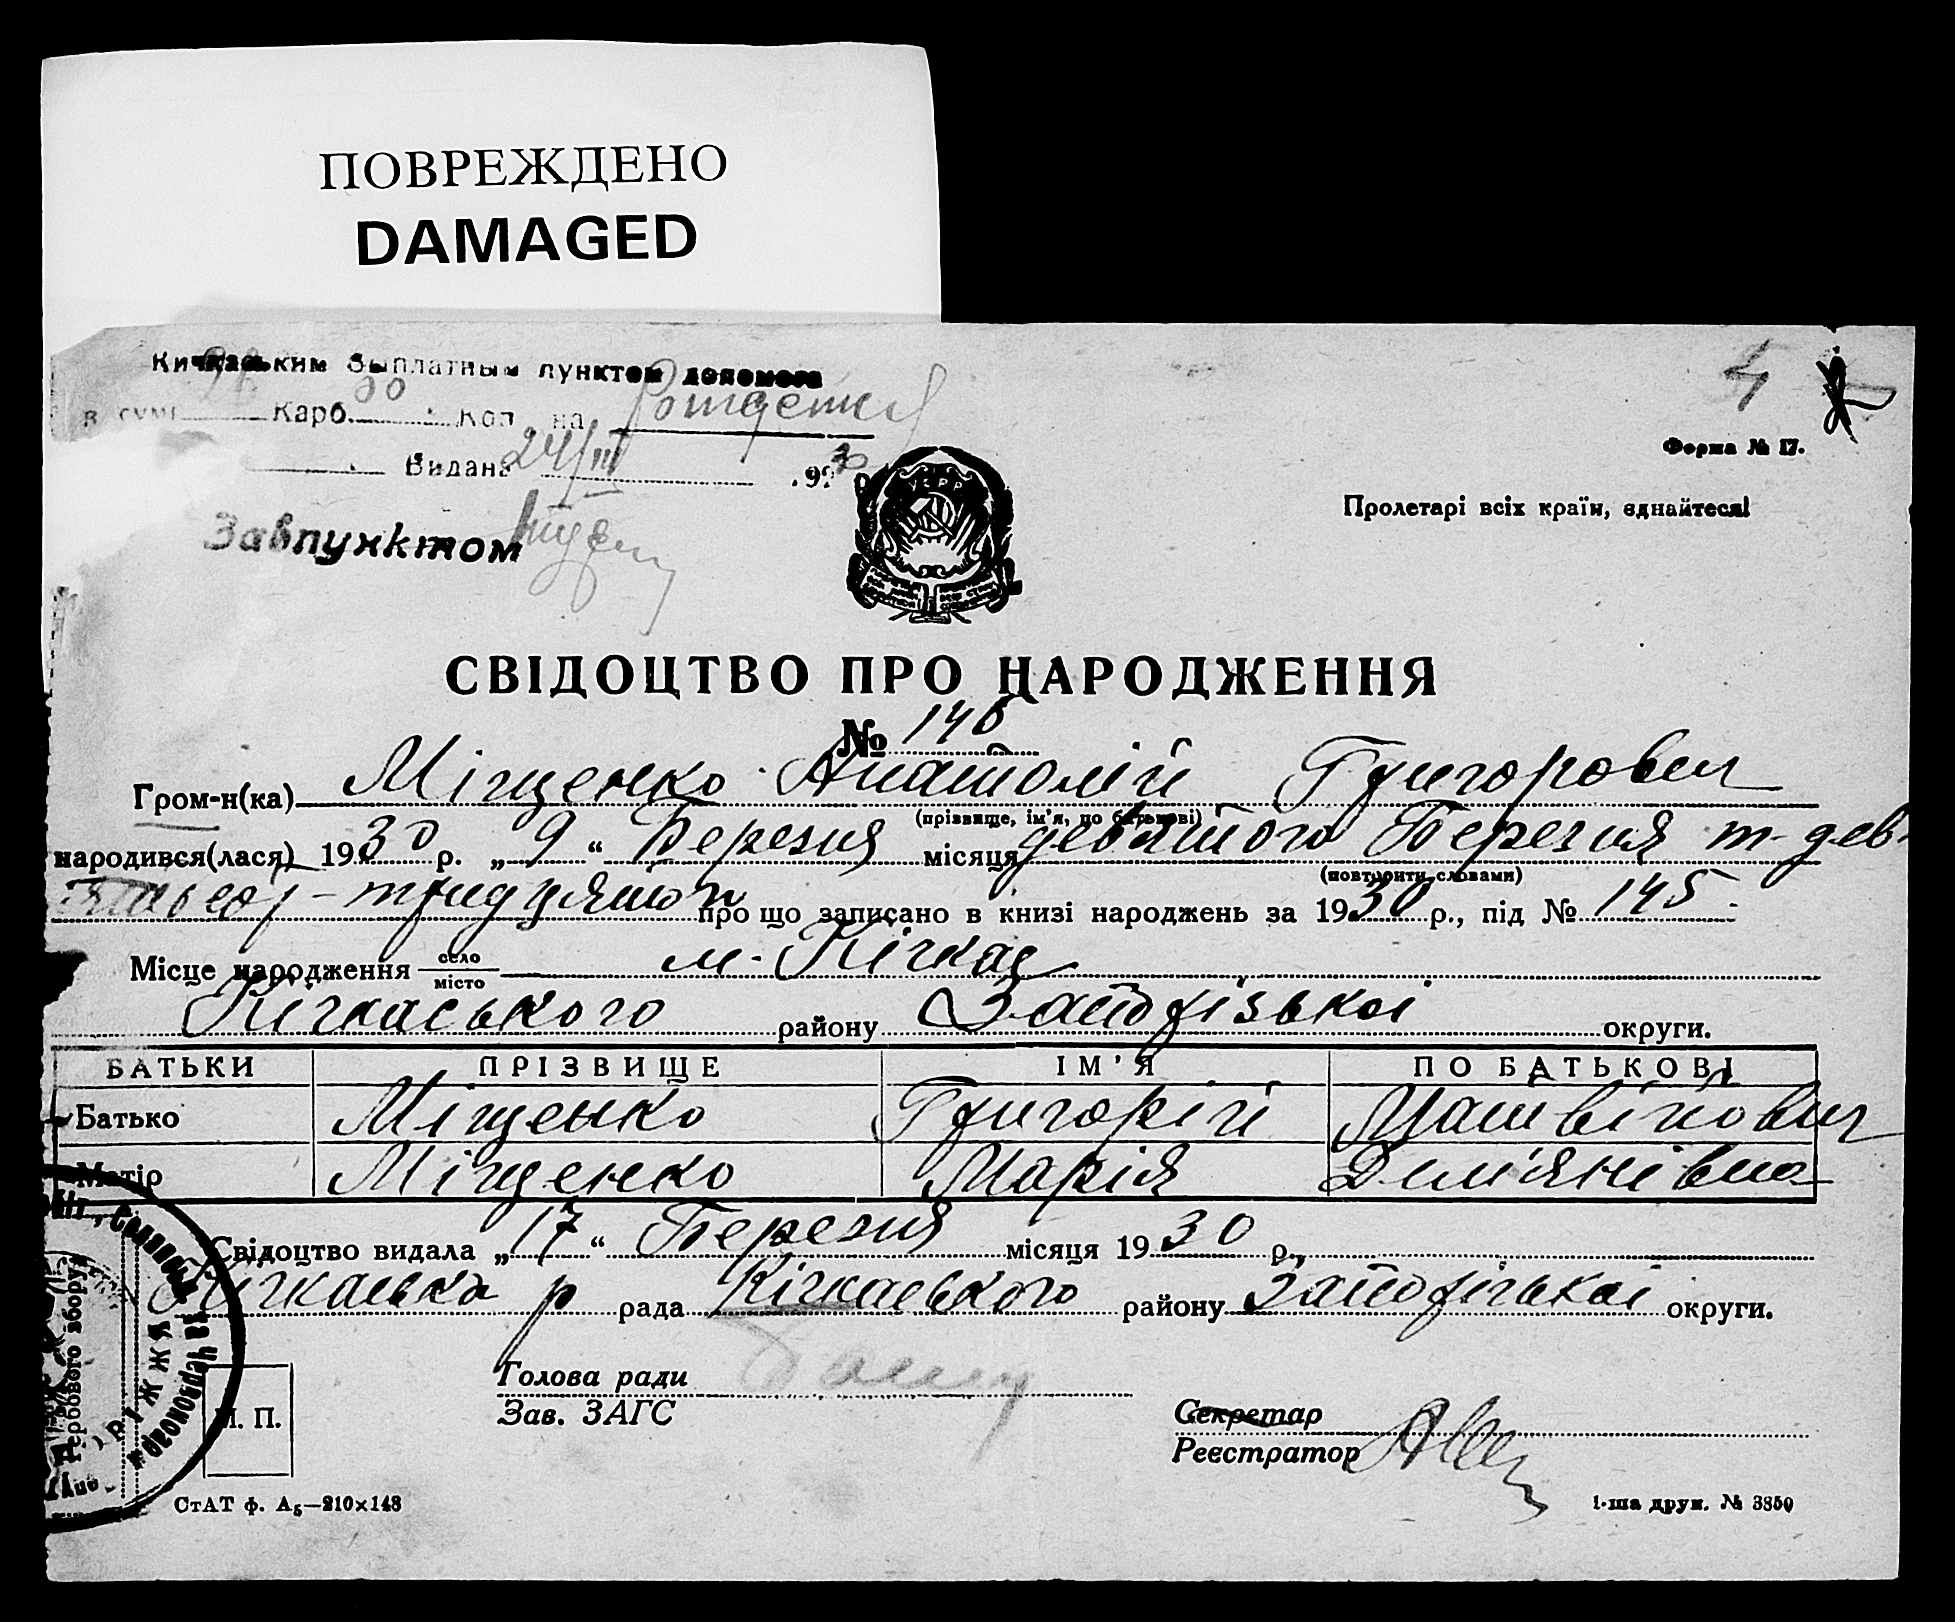 ПОВРЕЖДЕНО
DAMAGED
Кичкаським Выплатным пунктом допомога
в сумі Карб. 30 Коп на Рождения
Видана 24/III 1930 р
Завпунктом
4
Форма № 17.
Пролетарі всіх країн, єднайтеся!
УСРР
СВІДОЦТВО ПРО НАРОДЖЕННЯ
№ 146
Гром-н(ка) Міщенко Анатолій Григорович
(прізвище, ім'я, по батькові)
народився(лася) 1930 р. „9“ Березня місяця девятого Березня т- дев'-
(повторити словами)
ятьсот-тридцятого про що записано в книзі народжень за 1930 р., під № 145.
Місце народження село м. Кічкас
місто
Кічкаського району Запорізької округи.
БАТЬКИ ПРІЗВИЩЕ ІМ'Я ПО БАТЬКОВІ
Батько Міщенко Григорій Матвійович
Матір Міщенко Марія Дем'янівна
Свідоцтво видала „17“ Березня місяця 1930 р.,
Кічкаська р рада Кічкаського району Запорізької округи.
Голова ради
Зав. ЗАГС
Секретар
Реєстратор
М. П.
Гербового збору
СтАТ ф. А5—210×148
1-ша друк. № 3850